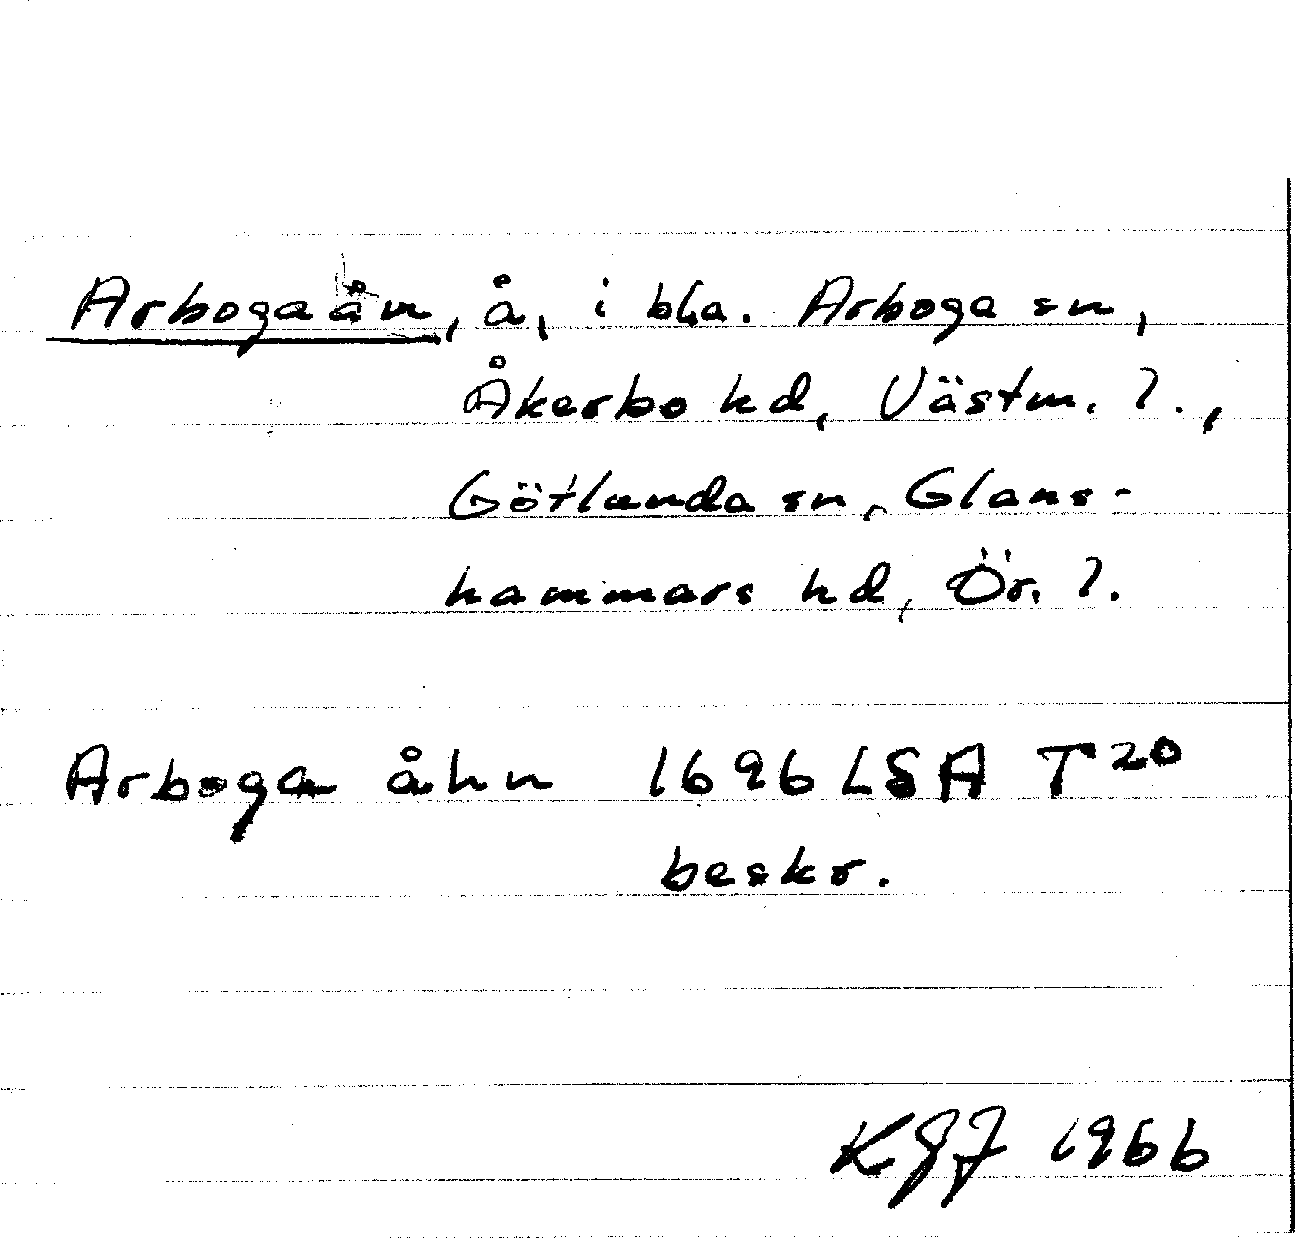 Arbogaån, å, i bl.a. Arboga sn,
Åkerbo hd, Västm. l.,
Götlunda sn, Glans-
hammars hd, Ör. l.
Arboga åhn 1696 LSA T 20
beskr.
KGJ 1966